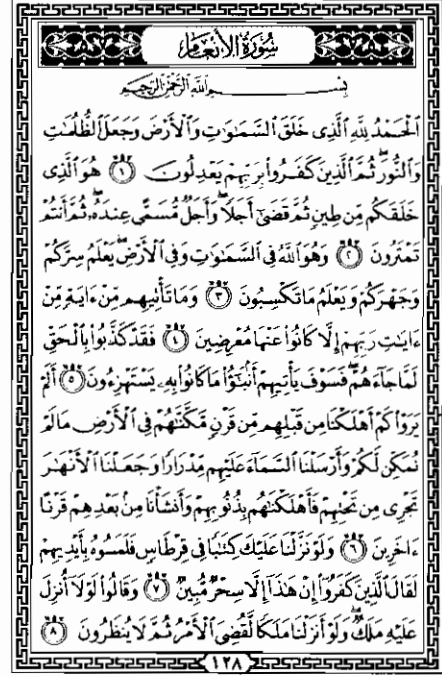 سُورَةُ الأَنْعَام
بِسْمِ اللَّهِ الرَّحْمَٰنِ الرَّحِيمِ
الْحَمْدُ لِلَّهِ الَّذِي خَلَقَ السَّمَٰوَٰتِ وَالْأَرْضَ وَجَعَلَ الظُّلُمَٰتِ
وَالنُّورَ ۖ ثُمَّ الَّذِينَ كَفَرُوا۟ بِرَبِّهِمْ يَعْدِلُونَ ١ هُوَ الَّذِي
خَلَقَكُم مِّن طِينٍ ثُمَّ قَضَىٰٓ أَجَلًا ۖ وَأَجَلٌ مُّسَمًّى عِندَهُۥ ۖ ثُمَّ أَنتُمْ
تَمْتَرُونَ ٢ وَهُوَ اللَّهُ فِي السَّمَٰوَٰتِ وَفِي الْأَرْضِ ۖ يَعْلَمُ سِرَّكُمْ
وَجَهْرَكُمْ وَيَعْلَمُ مَا تَكْسِبُونَ ٣ وَمَا تَأْتِيهِم مِّنْ ءَايَةٍ مِّنْ
ءَايَٰتِ رَبِّهِمْ إِلَّا كَانُوا۟ عَنْهَا مُعْرِضِينَ ٤ فَقَدْ كَذَّبُوا۟ بِالْحَقِّ
لَمَّا جَآءَهُمْ ۖ فَسَوْفَ يَأْتِيهِمْ أَنۢبَٰٓؤُا۟ مَا كَانُوا۟ بِهِۦ يَسْتَهْزِءُونَ ٥ أَلَمْ
يَرَوْا۟ كَمْ أَهْلَكْنَا مِن قَبْلِهِم مِّن قَرْنٍ مَّكَّنَّٰهُمْ فِي الْأَرْضِ مَا لَمْ
نُمَكِّن لَّكُمْ وَأَرْسَلْنَا السَّمَآءَ عَلَيْهِم مِّدْرَارًا وَجَعَلْنَا الْأَنْهَٰرَ
تَجْرِي مِن تَحْتِهِمْ فَأَهْلَكْنَٰهُم بِذُنُوبِهِمْ وَأَنشَأْنَا مِنۢ بَعْدِهِمْ قَرْنًا
ءَاخَرِينَ ٦ وَلَوْ نَزَّلْنَا عَلَيْكَ كِتَٰبًا فِي قِرْطَاسٍ فَلَمَسُوهُ بِأَيْدِيهِمْ
لَقَالَ الَّذِينَ كَفَرُوٓا۟ إِنْ هَٰذَآ إِلَّا سِحْرٌ مُّبِينٌ ٧ وَقَالُوا۟ لَوْلَآ أُنزِلَ
عَلَيْهِ مَلَكٌ ۖ وَلَوْ أَنزَلْنَا مَلَكًا لَّقُضِيَ الْأَمْرُ ثُمَّ لَا يُنظَرُونَ ٨
١٢٨